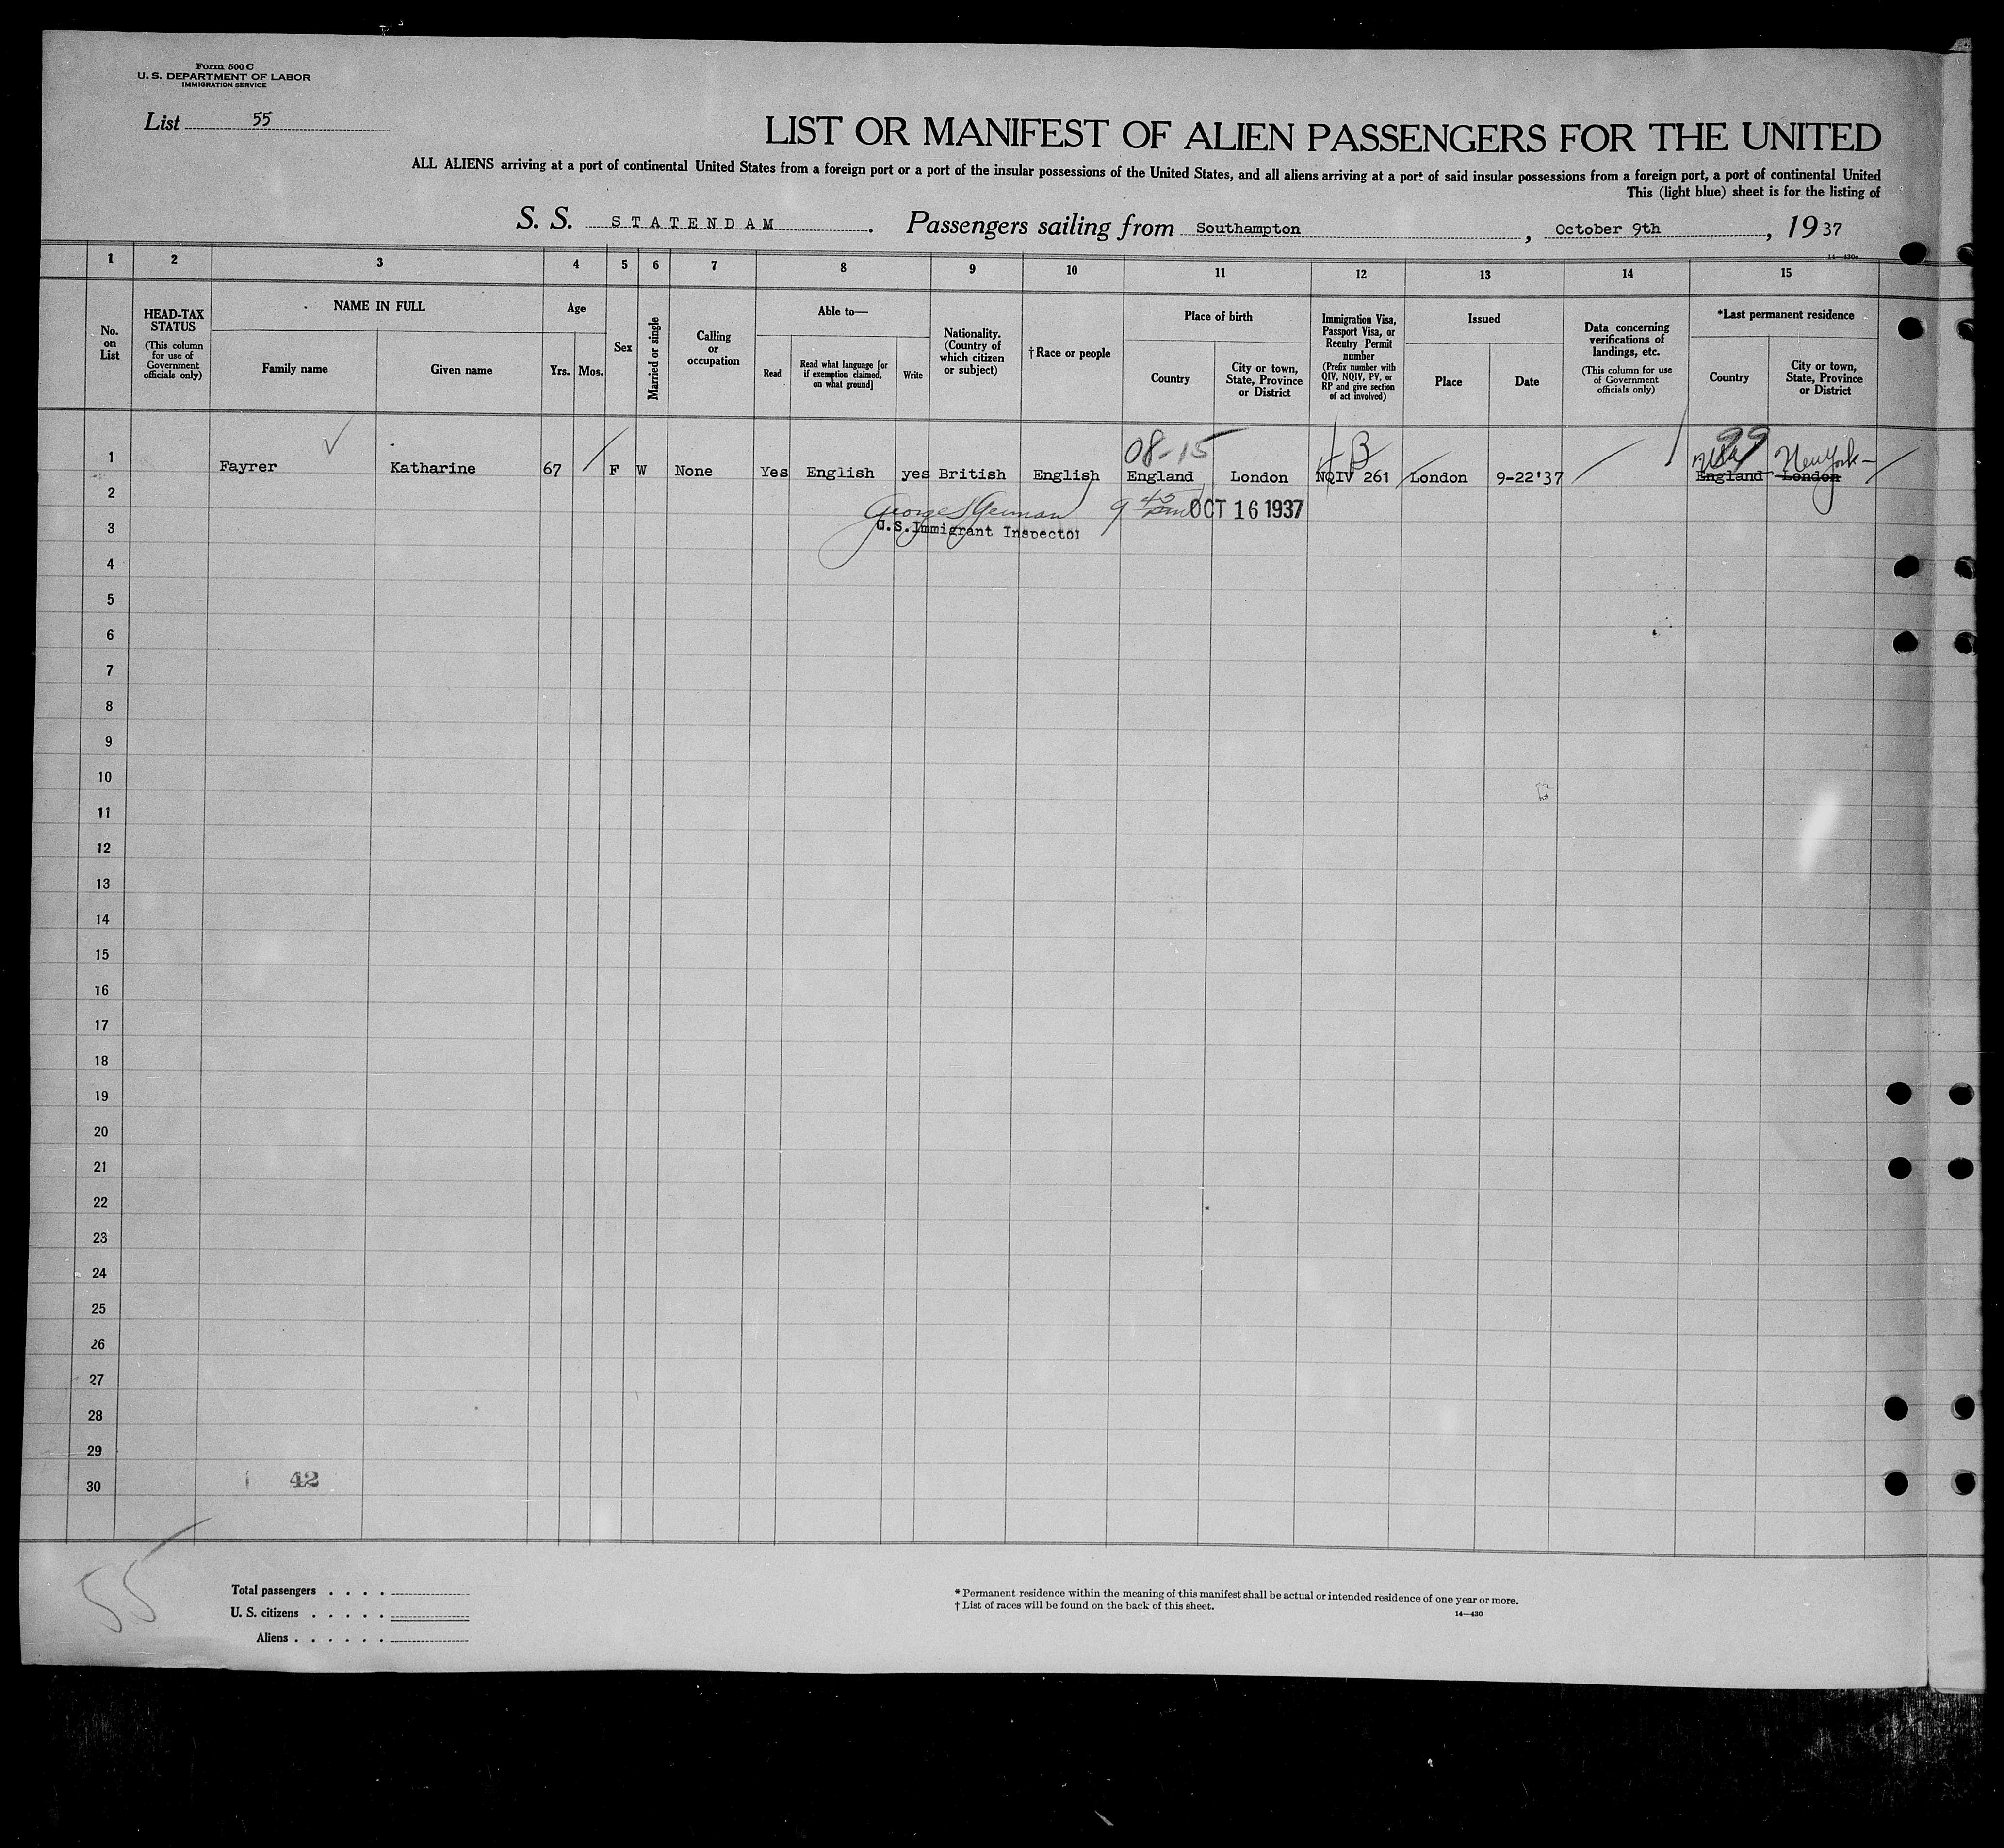 Form 500 C
U. S. DEPARTMENT OF LABOR
IMMIGRATION SERVICE
List 55
LIST OR MANIFEST OF ALIEN PASSENGERS FOR THE UNITED
ALL ALIENS arriving at a port of continental United States from a foreign port or a port of the insular possessions of the United States, and all aliens arriving at a port of said insular possessions from a foreign port, a port of continental United
This (light blue) sheet is for the listing of
S. S. STATENDAM. Passengers sailing from Southampton, October 9th, 1937
1 2 3 4 5 6 7 8 9 10 11 12 13 14 15
No. on List
HEAD-TAX STATUS (This column for use of Government officials only)
NAME IN FULL
Family name Given name
Age
Yrs. Mos.
Sex
Married or single
Calling or occupation
Able to—
Read
Read what language [or if exemption claimed, on what ground]
Write
Nationality. (Country of which citizen or subject)
†Race or people
Place of birth
Country
City or town, State, Province or District
Immigration Visa, Passport Visa, or Reentry Permit number (Prefix number with QIV, NQIV, PV, or RP and give section of act involved)
Issued
Place Date
Data concerning verifications of landings, etc. (This column for use of Government officials only)
*Last permanent residence
Country
City or town, State, Province or District
08-15 B 99 New York
1 Fayrer Katharine 67 F W None Yes English yes British English England London NQIV 261 London 9-22'37 England London
2 9 45 OCT 16 1937
3 U.S. Immigrant Inspector
4
5
6
7
8
9
10
11
12
13
14
15
16
17
18
19
20
21
22
23
24
25
26
27
28
29
30 42
55
Total passengers . . . .
U. S. citizens . . . . .
Aliens . . . . . .
* Permanent residence within the meaning of this manifest shall be actual or intended residence of one year or more.
† List of races will be found on the back of this sheet.
14—430